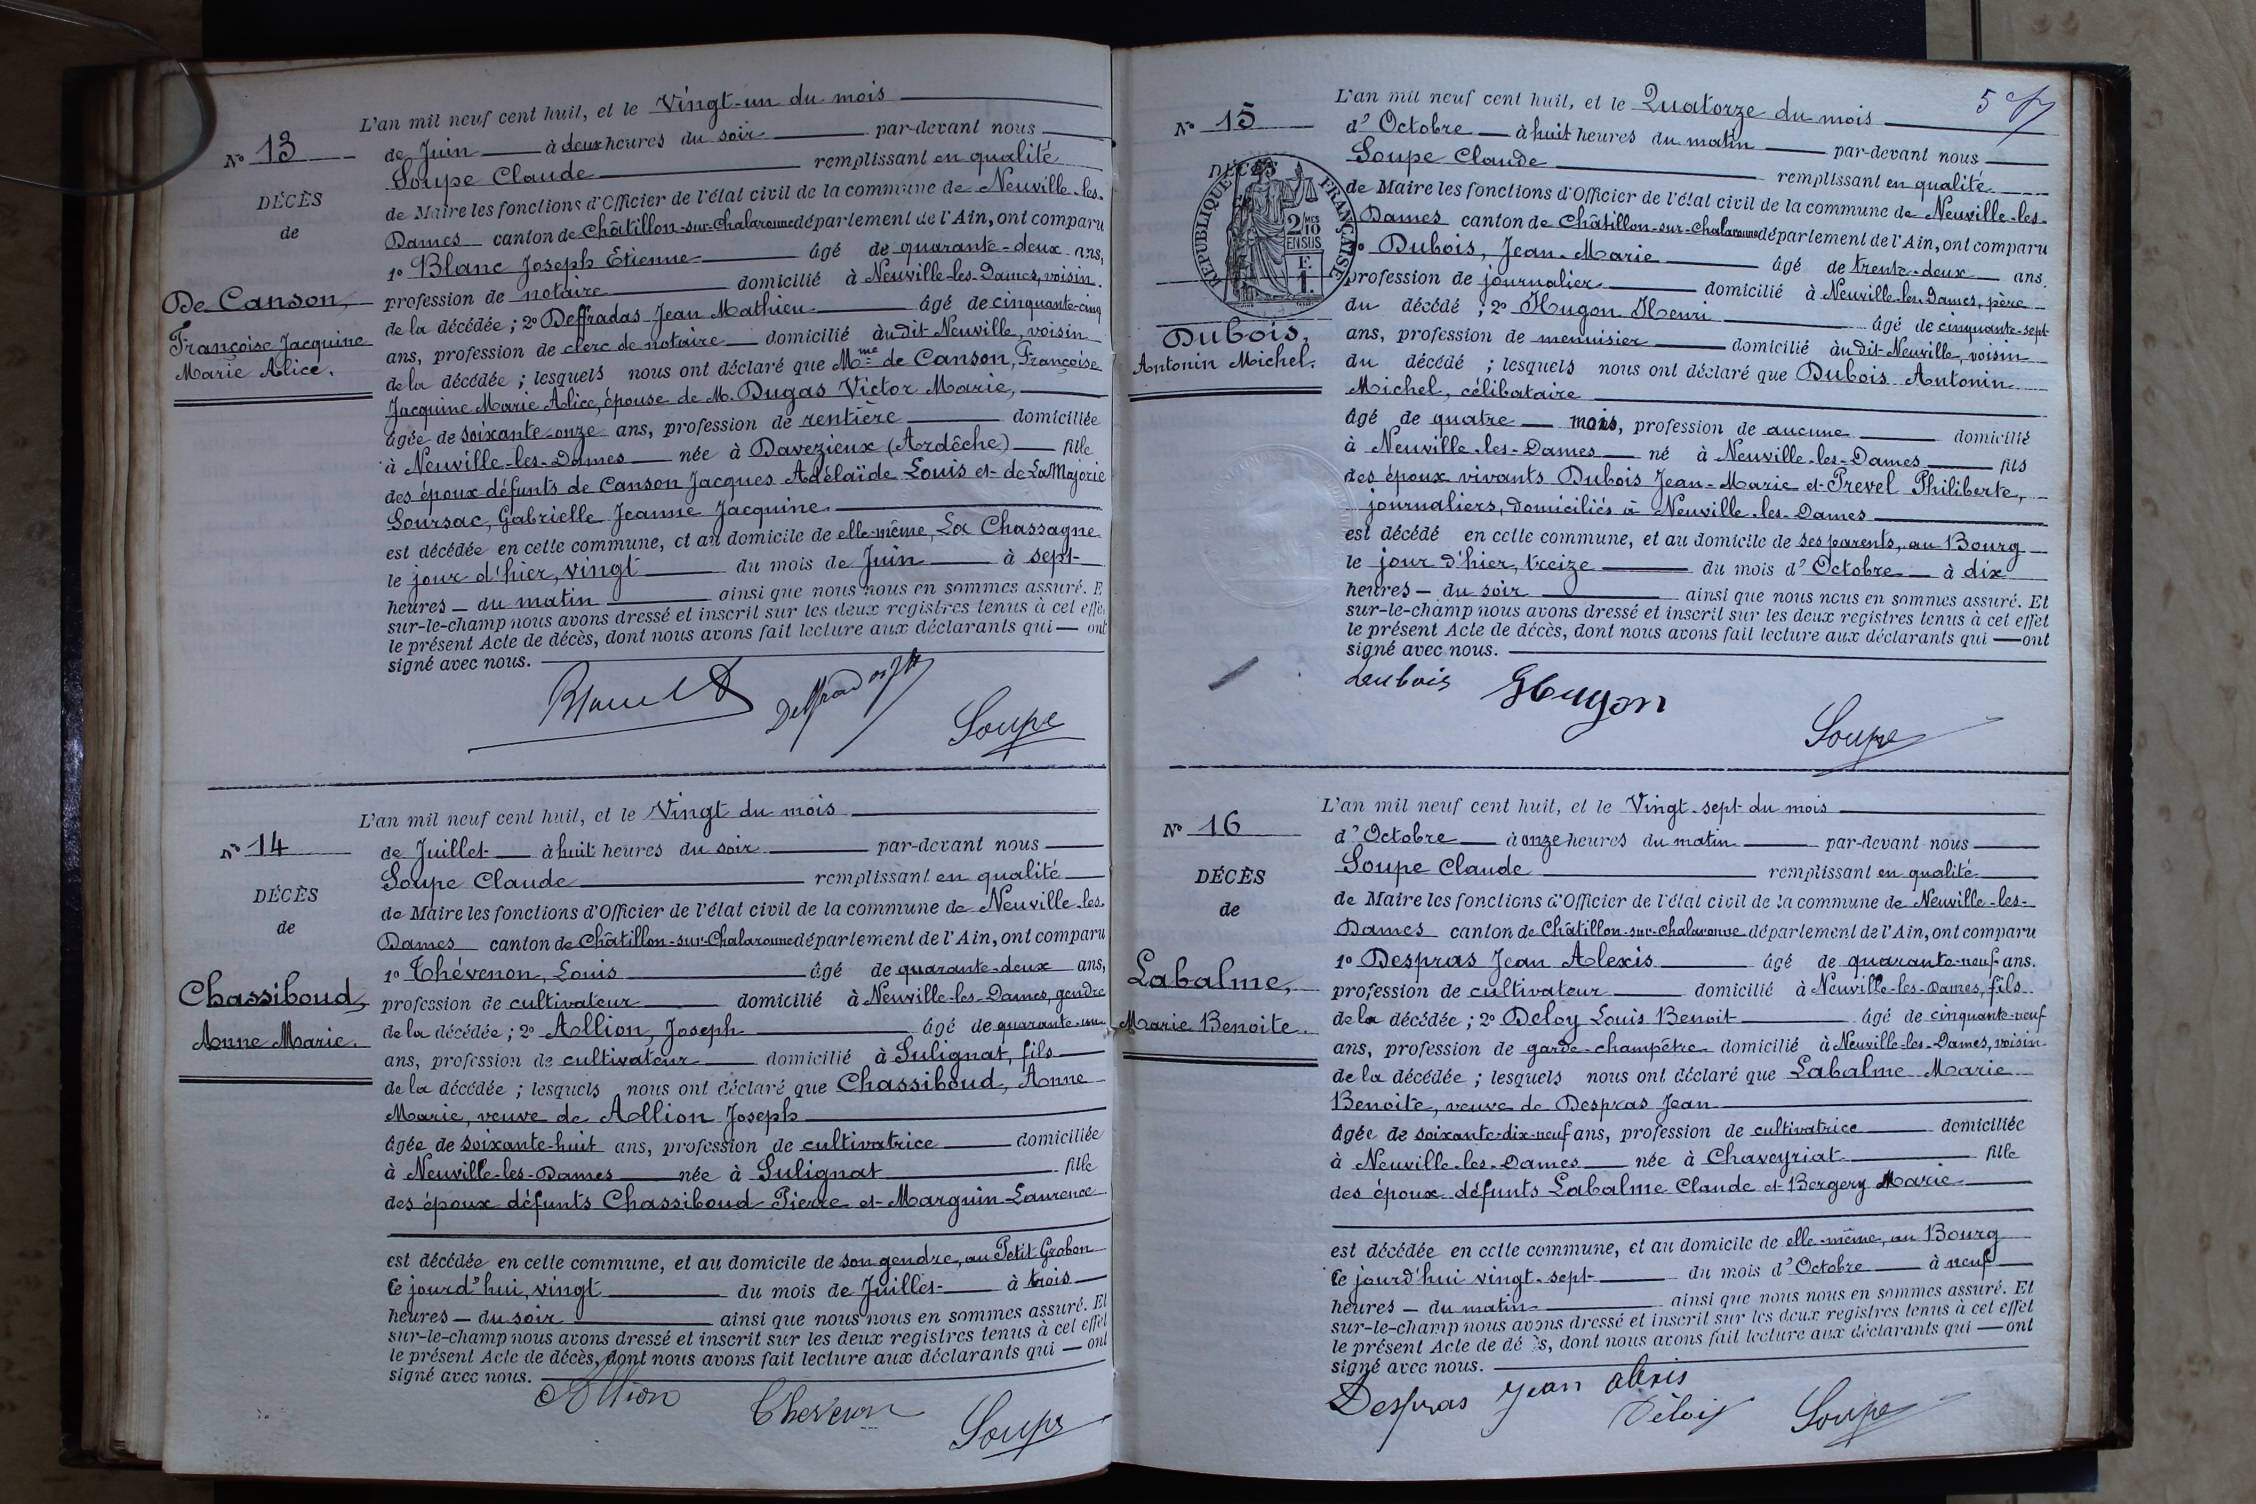 N° 13
DÉCÈS
de
De Canson,
Françoise Jacquine
Marie Alice.
L'an mil neuf cent huit, et le Vingt-un du mois
de Juin à deux heures du soir par-devant nous
Soupe Claude remplissant en qualité
de Maire les fonctions d'Officier de l'état civil de la commune de Neuville-les-
Dames canton de Châtillon-sur-Chalaronne département de l'Ain, ont comparu
1° Blanc Joseph Etienne âgé de quarante-deux ans,
profession de notaire domicilié à Neuville-les-Dames, voisin
de la décédée ; 2° Deffradas Jean Mathieu âgé de cinquante-cinq
ans, profession de clerc de notaire domicilié audit Neuville, voisin
de la décédée ; lesquels nous ont déclaré que Mme de Canson, Françoise
Jacquine Marie Alice, épouse de M. Dugas Victor Marie,
âgée de soixante-onze ans, profession de rentière domiciliée
à Neuville-les-Dames née à Davezieux (Ardêche) fille
des époux défunts de Canson Jacques Adélaïde Louis et de La Majorie
Soursac, Gabrielle Jeanne Jacquine
est décédée en cette commune, et au domicile de elle-même, La Chassagne
le jour d'hier, vingt du mois de Juin à sept
heures du matin ainsi que nous nous en sommes assuré. E
sur-le-champ nous avons dressé et inscrit sur les deux registres tenus à cet effe
le présent Acte de décès, dont nous avons fait lecture aux déclarants qui — ont
signé avec nous.
Blanc Deffradas Soupe
N° 14
DÉCÈS
de
Chassiboud,
Anne Marie.
L'an mil neuf cent huit, et le Vingt du mois
de Juillet à huit heures du soir par-devant nous
Soupe Claude remplissant en qualité
de Maire les fonctions d'Officier de l'état civil de la commune de Neuville-les-
Dames canton de Châtillon-sur-Chalaronne département de l'Ain, ont comparu
1° Thévenon, Louis âgé de quarante-deux ans,
profession de cultivateur domicilié à Neuville-les-Dames, gendre
de la décédée ; 2° Allion, Joseph âgé de quarante-un
ans, profession de cultivateur domicilié à Sulignat, fils
de la décédée ; lesquels nous ont déclaré que Chassiboud, Anne
Marie, veuve de Allion Joseph
âgée de soixante-huit ans, profession de cultivatrice domiciliée
à Neuville-les-Dames née à Sulignat fille
des époux défunts Chassiboud Pierre et Marguin Laurence
est décédée en cette commune, et au domicile de son gendre, au Petit Grobon
Ce jourd'hui, vingt du mois de Juillet à trois
heures — du soir ainsi que nous nous en sommes assuré. Et
sur-le-champ nous avons dressé et inscrit sur les deux registres tenus à cet effet
le présent Acte de décès, dont nous avons fait lecture aux déclarants qui — ont
signé avec nous.
Allion Thevenon Soupe
N° 15
DÉCÈS
RÉPUBLIQUE FRANÇAISE
2/10 MES
EN SUS
F.
1.
Dubois,
Antonin Michel.
5
L'an mil neuf cent huit, et le Quatorze du mois
d'Octobre à huit heures du matin par-devant nous
Soupe Claude remplissant en qualité
de Maire les fonctions d'Officier de l'état civil de la commune de Neuville-les-
Dames canton de Châtillon-sur-Chalaronne département de l'Ain, ont comparu
1° Dubois, Jean-Marie âgé de trente-deux ans.
profession de journalier domicilié à Neuville-les-Dames, père
du décédé ; 2° Hugon Henri âgé de cinquante-sept
ans, profession de menuisier domicilié audit Neuville, voisin
du décédé ; lesquels nous ont déclaré que Dubois Antonin
Michel, célibataire
âgé de quatre mois, profession de aucune domicilié
à Neuville-les-Dames né à Neuville-les-Dames fils
des époux vivants Dubois Jean-Marie et Prevel Philiberte,
journaliers, domiciliés à Neuville-les-Dames
est décédé en cette commune, et au domicile de ses parents, au Bourg
le jour d'hier, treize du mois d'Octobre à dix
heures — du soir ainsi que nous nous en sommes assuré. Et
sur-le-champ nous avons dressé et inscrit sur les deux registres tenus à cet effet
le présent Acte de décès, dont nous avons fait lecture aux déclarants qui — ont
signé avec nous.
Dubois Hugon Soupe
N° 16
DÉCÈS
de
Labalme,
Marie Benoite.
L'an mil neuf cent huit, et le Vingt-sept du mois
d'Octobre à onze heures du matin par-devant nous
Soupe Claude remplissant en qualité
de Maire les fonctions d'Officier de l'état civil de la commune de Neuville-les-
Dames canton de Châtillon-sur-Chalaronne département de l'Ain, ont comparu
1° Despras Jean Alexis âgé de quarante-neuf ans.
profession de cultivateur domicilié à Neuville-les-Dames, fils
de la décédée ; 2° Deloy Louis Benoit âgé de cinquante-neuf
ans, profession de garde-champêtre domicilié à Neuville-les-Dames, voisin
de la décédée ; lesquels nous ont déclaré que Labalme Marie
Benoite, veuve de Despras Jean
âgée de soixante-dix-neuf ans, profession de cultivatrice domiciliée
à Neuville-les-Dames née à Chaveyriat fille
des époux défunts Labalme Claude et Bergery Marie
est décédée en cette commune, et au domicile de elle-même, au Bourg
Ce jourd'hui vingt-sept du mois d'Octobre à neuf
heures — du matin ainsi que nous nous en sommes assuré. Et
sur-le-champ nous avons dressé et inscrit sur les deux registres tenus à cet effet
le présent Acte de dé s, dont nous avons fait lecture aux déclarants qui — ont
signé avec nous.
Despras Jean alexis Deloy Soupe